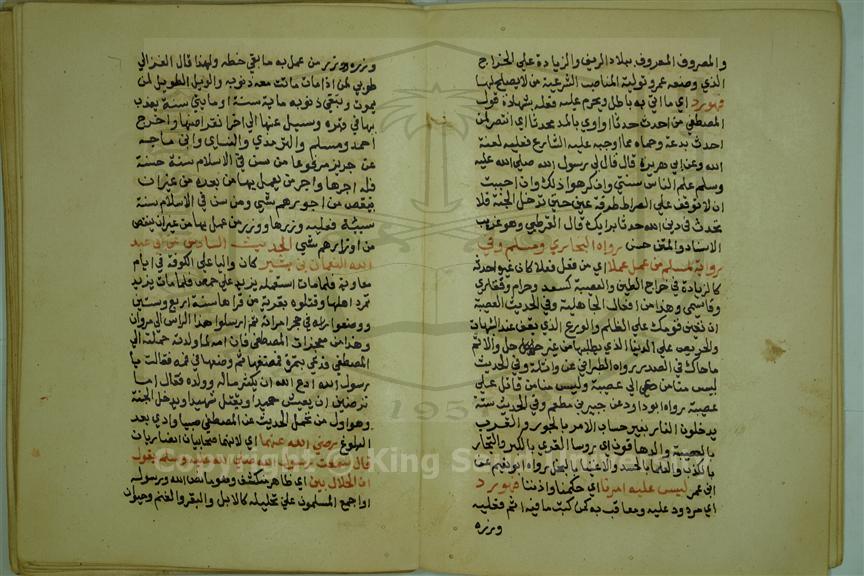 والمصروف المعروف ببلاد الريف والزيادة على الخراج
الذي وضعه عمر وتولية المناصب الشرعية من لا يصلح لها
فهو رد اي ما اتى به باطل ويحرم عليه فعله بشهادة قول
المصطفى من احدث حدثا او اوي بالمد محدثا اي انتصر لمن
احدث بدعة وحماه مما اوجبه عليه الشارع فعليه لعنة
الله وعن ابي هريرة قال قال لي رسول الله صلى الله عليه
وسلم علم الناس سنتي وان كرهوا ذلك وان احببت
ان لا توقف على الصراط طرفة عين حتى تدخل الجنة فلا
تحدث في دين الله حدثا برايك قال القرطبي وهو غريب
الاسناد والمتن حسن رواه البخاري ومسلم وفي
رواية لمسلم من عمل عملا اي من فعل فعلا كان غيره احدثه
كالزيادة في خراج الطين والعصبة كسعد وحرام
وقاسمي وهذا من افعال الجاهلية وفي الحديث العصبة
ان تعين قومك على الظلم والورع الذي يقف عند الشبهات
والحريص على الدنيا الذي يطلبها من غير حل والاثم
ما حاك في الصدر رواه الطبراني عن واثلة وفي الحديث
ليس منا من دعى الى عصبية وليس منا من قاتل على
عصبية رواه ابو داود عن جبير بن مطعم وفي الحديث ستة
يدخلون النار بغير حساب الامرا بالجور والعرب
بالعصبية والدهاقون اي روسا القرى بالكبر والتجار
بالكذب والعلما بالحسد والاغنيا بالبخل رواه ابو نعيم عن
ابن عمر ليس عليه امرنا اي حكمنا واذننا فهو رد
اي مردود عليه ومعاقب به كمن كتب ما فيه اثم فعليه
وزره
وزره ووزر من عمل به ما بقي خطه ولهذا قال الغزالي
طوبى لمن اذا مات ماتت معه ذنوبه والويل الطويل لمن
يموت وتبقى ذنوبه ماية سنة او مايتي سنة يعذب
بها في قبره ويسيل عنها الى اخر انقراضها واخرج
احمد ومسلم والترمذي والنساي وابن ماجه
عن جرير مرفوعا من سن في الاسلام سنة حسنة
فله اجرها واجر من يعمل بها من بعده من غير ان
ينقص من اجورهم شي ومن سن في الاسلام سنة
سيئة فعليه وزرها ووزر من عمل بها من غير ان ينقص
من اوزارهم شي الحديث السادس عن ابي عبد
الله النعمان بن بشير كان واليا على الكوفة في ايام
معاوية فلما مات استعمله يزيد على حمص فلما مات يزيد
تمرد اهلها وقتلوه بقرية من قراها سنة اربع وستين
ووضعوا راسه في حجر امراته ثم ارسلوا هذا الراس الى مروان
وهذا من معجزات المصطفى فان امه لما ولدته حملته الى
المصطفى فدعى بتمرة فمضغها ثم وضعها في فمه فقالت يا
رسول الله ادع الله ان يكثر ماله وولده فقال اما
ترضين ان يعيش حميدا ويقتل شهيدا ويدخل الجنة
وهو اول من تحمل الحديث عن المصطفى صبيا وادى بعد
البلوغ رضي الله عنهما اي لانهما صحابيان انصاريان
قال سمعت رسول الله صلى الله عليه وسلم يقول
ان الحلال بين اي ظاهر منكشف وهو ما نص الله ورسوله
او اجمع المسلمون على تحليله كالابل والبقر والغنم
1957
Copyright © King Saud University